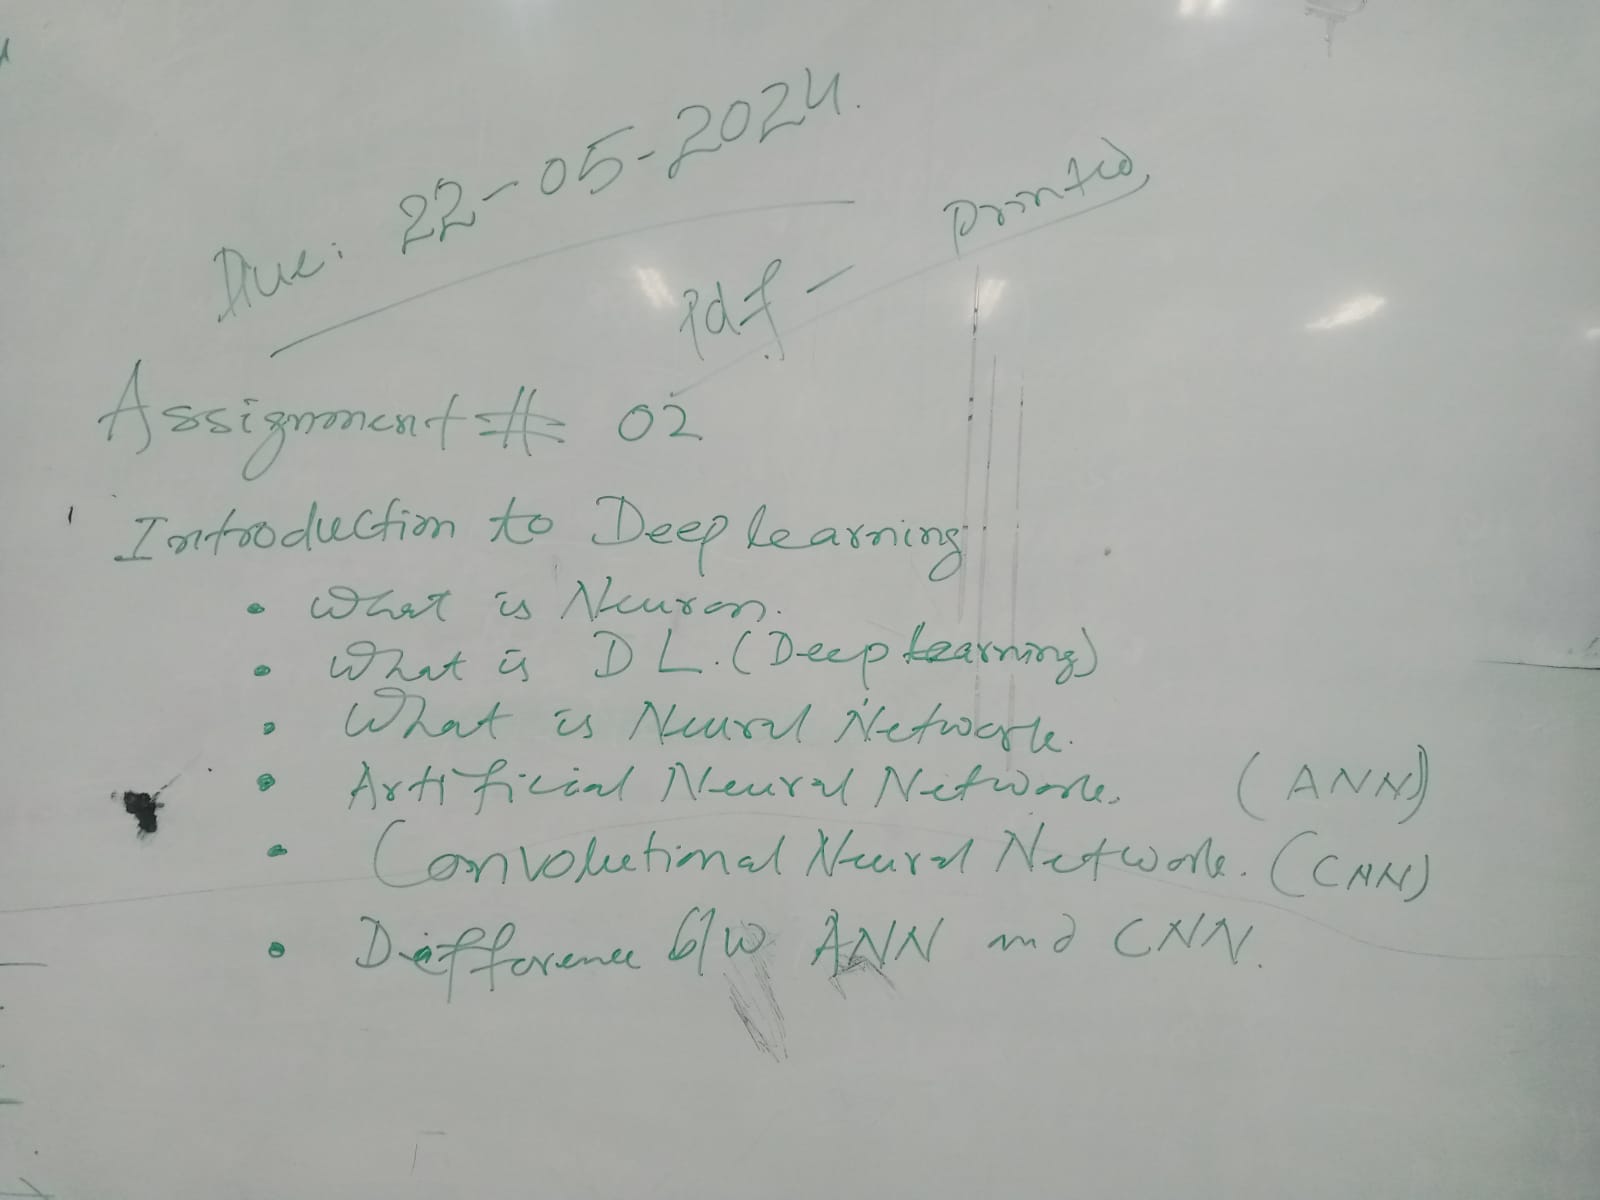 Due: 22-05-2024.
Pdf - printed
Assignment # 02
Introduction to Deep learning
• What is Neuron.
• What is DL. (Deep Learning)
• What is Neural Network.
• Artificial Neural Network. (ANN)
• Convolutional Neural Network. (CNN)
• Difference b/w ANN and CNN.